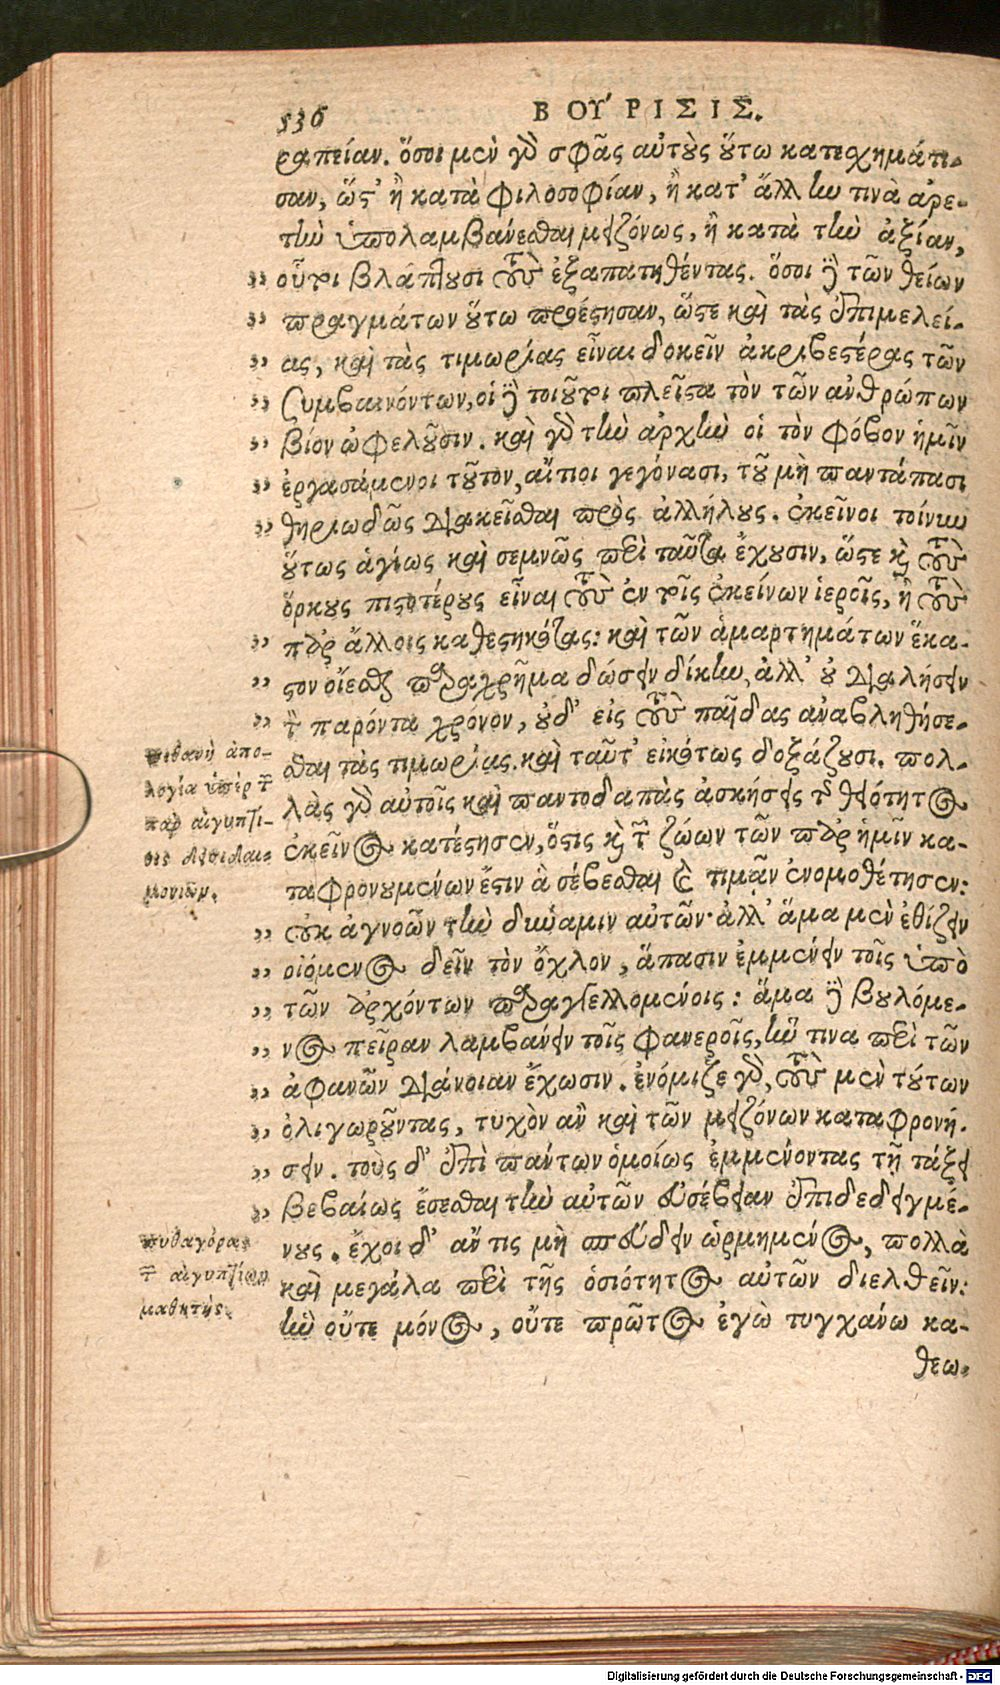 536 ΒΟΎΡΙΣΙΣ.
ραπείαν. ὅσοι μὲν γὰ σφᾶς αὐτοὺς οὕτω κατεχημάτι-
σαν, ὥστ' ἢ κατὰ φιλοσοφίαν, ἢ κατ' ἄλλην τινὰ ἀρε-
τὴν ὑπολαμβάνεσθαι μειζόνως, ἢ κατὰ τὴν ἀξίαν,
„ οὗτοι βλάπτουσι τοὺς ἐξαπατηθέντας. ὅσοι δὲ τῶν θείων
„ πραγμάτων οὕτω προέστησαν, ὥστε καὶ τὰς ἐπιμελεί-
„ ας, καὶ τὰς τιμωρίας εἶναι δοκεῖν ἀκριβεστέρας τῶν
„ συμβαινόντων, οἱ δὲ τοιοῦτοι πλεῖστα τὸν τῶν ἀνθρώπων
„ βίον ὠφελοῦσιν. καὶ γὰρ τὴν ἀρχὴν οἱ τὸν φόβον ἡμῖν
„ ἐργασάμενοι τοῦτον, αἴτιοι γεγόνασι, τοῦ μὴ παντάπασι
„ θηριωδῶς διακεῖσθαι πρὸς ἀλλήλους. ἐκεῖνοι τοίνυν
οὕτως ἁγίως καὶ σεμνῶς περὶ ταῦτα ἔχουσιν, ὥστε καὶ τοὺς
ὅρκους πιστοτέρους εἶναι τοὺς ἐν τοῖς ἐκείνων ἱεροῖς, ἢ τοὺς
„ παρ' ἄλλοις καθεστηκότας: καὶ τῶν ἁμαρτημάτων ἕκα-
„ στον οἴεσθαι παραχρῆμα δώσειν δίκην, ἀλλ' οὐ διαλήσειν
„ τὸν παρόντα χρόνον, οὐδ' εἰς τοὺς παῖδας ἀναβληθήσε-
σθαι τὰς τιμωρίας. καὶ ταῦτ' εἰκότως δοξάζουσι. πολ-
λὰς γὰρ αὐτοῖς καὶ παντοδαπὰς ἀσκήσεις τῆς θειότητος
ἐκεῖνος κατέστησεν, ὅστις καὶ τῶν ζώων τῶν παρ' ἡμῖν κα-
ταφρονουμένων ἔστιν ἃ σέβεσθαι καὶ τιμᾶν ἐνομοθέτησεν:
„ οὐκ ἀγνοῶν τὴν δύναμιν αὐτῶν· ἀλλ' ἅμα μὲν ἐθίζειν
„ οἰόμενος δεῖν τὸν ὄχλον, ἅπασιν ἐμμένειν τοῖς ὑπὸ
„ τῶν ἀρχόντων παραγγελλομένοις: ἅμα δὲ βουλόμε-
„ νος πεῖραν λαμβάνειν τοῖς φανεροῖς, ἥν τινα περὶ τῶν
„ ἀφανῶν διάνοιαν ἔχωσιν. ἐνόμιζε γὰρ, τοὺς μὲν τούτων
„ ὀλιγωροῦντας, τυχὸν ἂν καὶ τῶν μειζόνων καταφρονή-
„ σειν. τοὺς δ' ἐπὶ πάντων ὁμοίως ἐμμένοντας τῇ τάξει
„ βεβαίως ἔσεσθαι τὴν αὑτῶν εὐσέβειαν ἐπιδεδειγμέ-
νους. ἔχοι δ' ἄν τις μὴ σπεύδειν ὡρμημένος, πολλὰ
καὶ μεγάλα περὶ τῆς ὁσιότητος αὐτῶν διελθεῖν:
ἣν οὔτε μόνος, οὔτε πρῶτος ἐγὼ τυγχάνω κα-
θεω-
πιθανὴ ἀπο-
λογία ὑπὲρ τῆς
παρ' αἰγυπτί-
οις δεισιδαι-
μονιῶν.
πυθαγόρας
τῶν αἰγυπτίων
μαθητής.
Digitalisierung gefördert durch die Deutsche Forschungsgemeinschaft - DFG